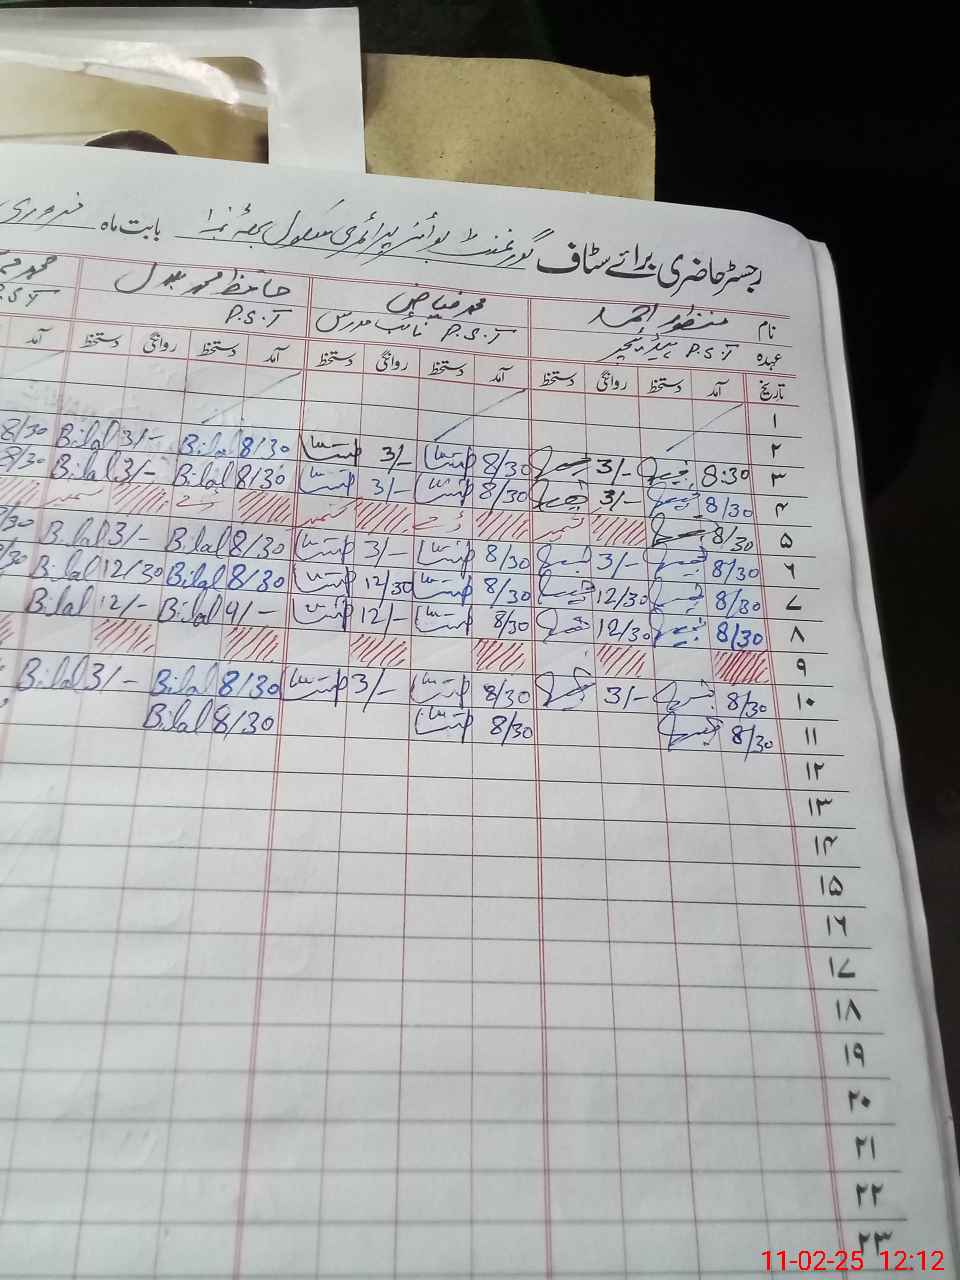 رجسٹر حاضری برائے سٹاف گورنمنٹ بوائز پرائمری سکول بھٹہ نمبر ۱ بابت ماہ فروری
نام منظور احمد محمد فیاض حافظ محمد بلال
عہدہ P.S.T ہیڈ ٹیچر P.S.T نائب مدرس P.S.T P.S.T
تاریخ آمد دستخط روانگی دستخط آمد دستخط روانگی دستخط آمد دستخط روانگی دستخط آمد
۱
۲
۳ 8:30 3/- 8/30 3/- 8/30 Bilal 3/- Bilal 8/30
۴ 8/30 3/- 8/30 3/- 8/30 Bilal 3/- Bilal 8/30
۵ 8/30 کشمیر ڈے کشمیر ڈے کشمیر
۶ 8/30 3/- 8/30 3/- 8/30 Bilal 3/- Bilal
۷ 8/30 12/30 8/30 12/30 8/30 Bilal 12/30 Bilal
۸ 8/30 12/30 8/30 12/- 9/- Bilal 12/- Bilal
۹
۱۰ 8/30 3/- 8/30 3/- 8/30 Bilal 3/- Bilal
۱۱ 8/30 8/30 8/30 Bilal
۱۲
۱۳
۱۴
۱۵
۱۶
۱۷
۱۸
۱۹
۲۰
۲۱
۲۲
۲۳
11-02-25 12:12